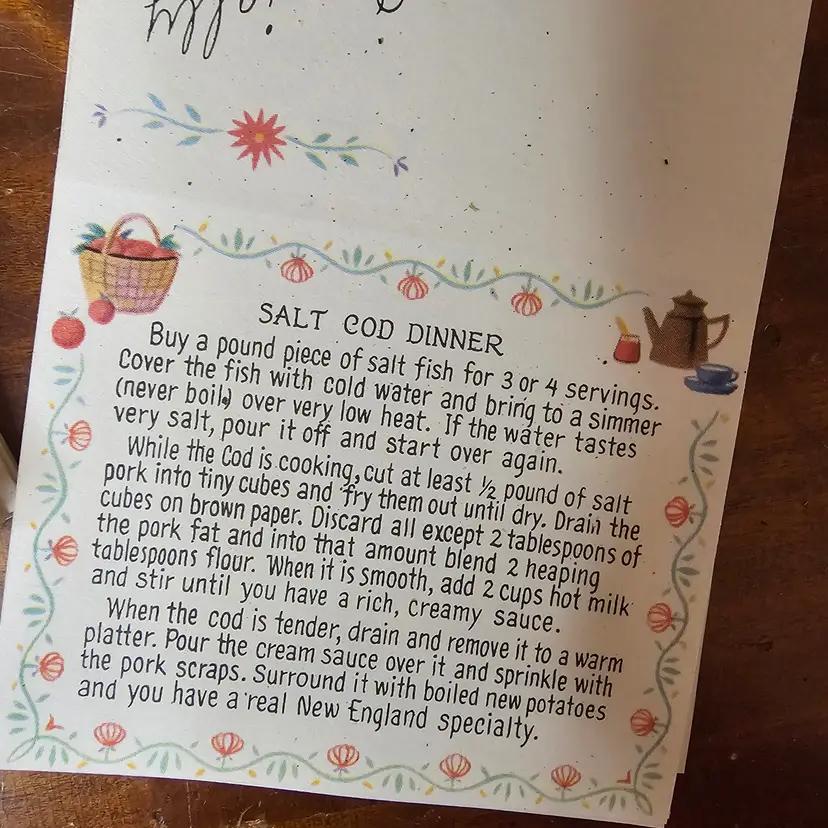 SALT COD DINNER
Buy a pound piece of salt fish for 3 or 4 servings.
Cover the fish with cold water and bring to a simmer
(never boil) over very low heat. If the water tastes
very salt, pour it off and start over again.
While the Cod is cooking, cut at least ½ pound of salt
pork into tiny cubes and fry them out until dry. Drain the
cubes on brown paper. Discard all except 2 tablespoons of
the pork fat and into that amount blend 2 heaping
tablespoons flour. When it is smooth, add 2 cups hot milk
and stir until you have a rich, creamy sauce.
When the cod is tender, drain and remove it to a warm
platter. Pour the cream sauce over it and sprinkle with
the pork scraps. Surround it with boiled new potatoes
and you have a real New England specialty.